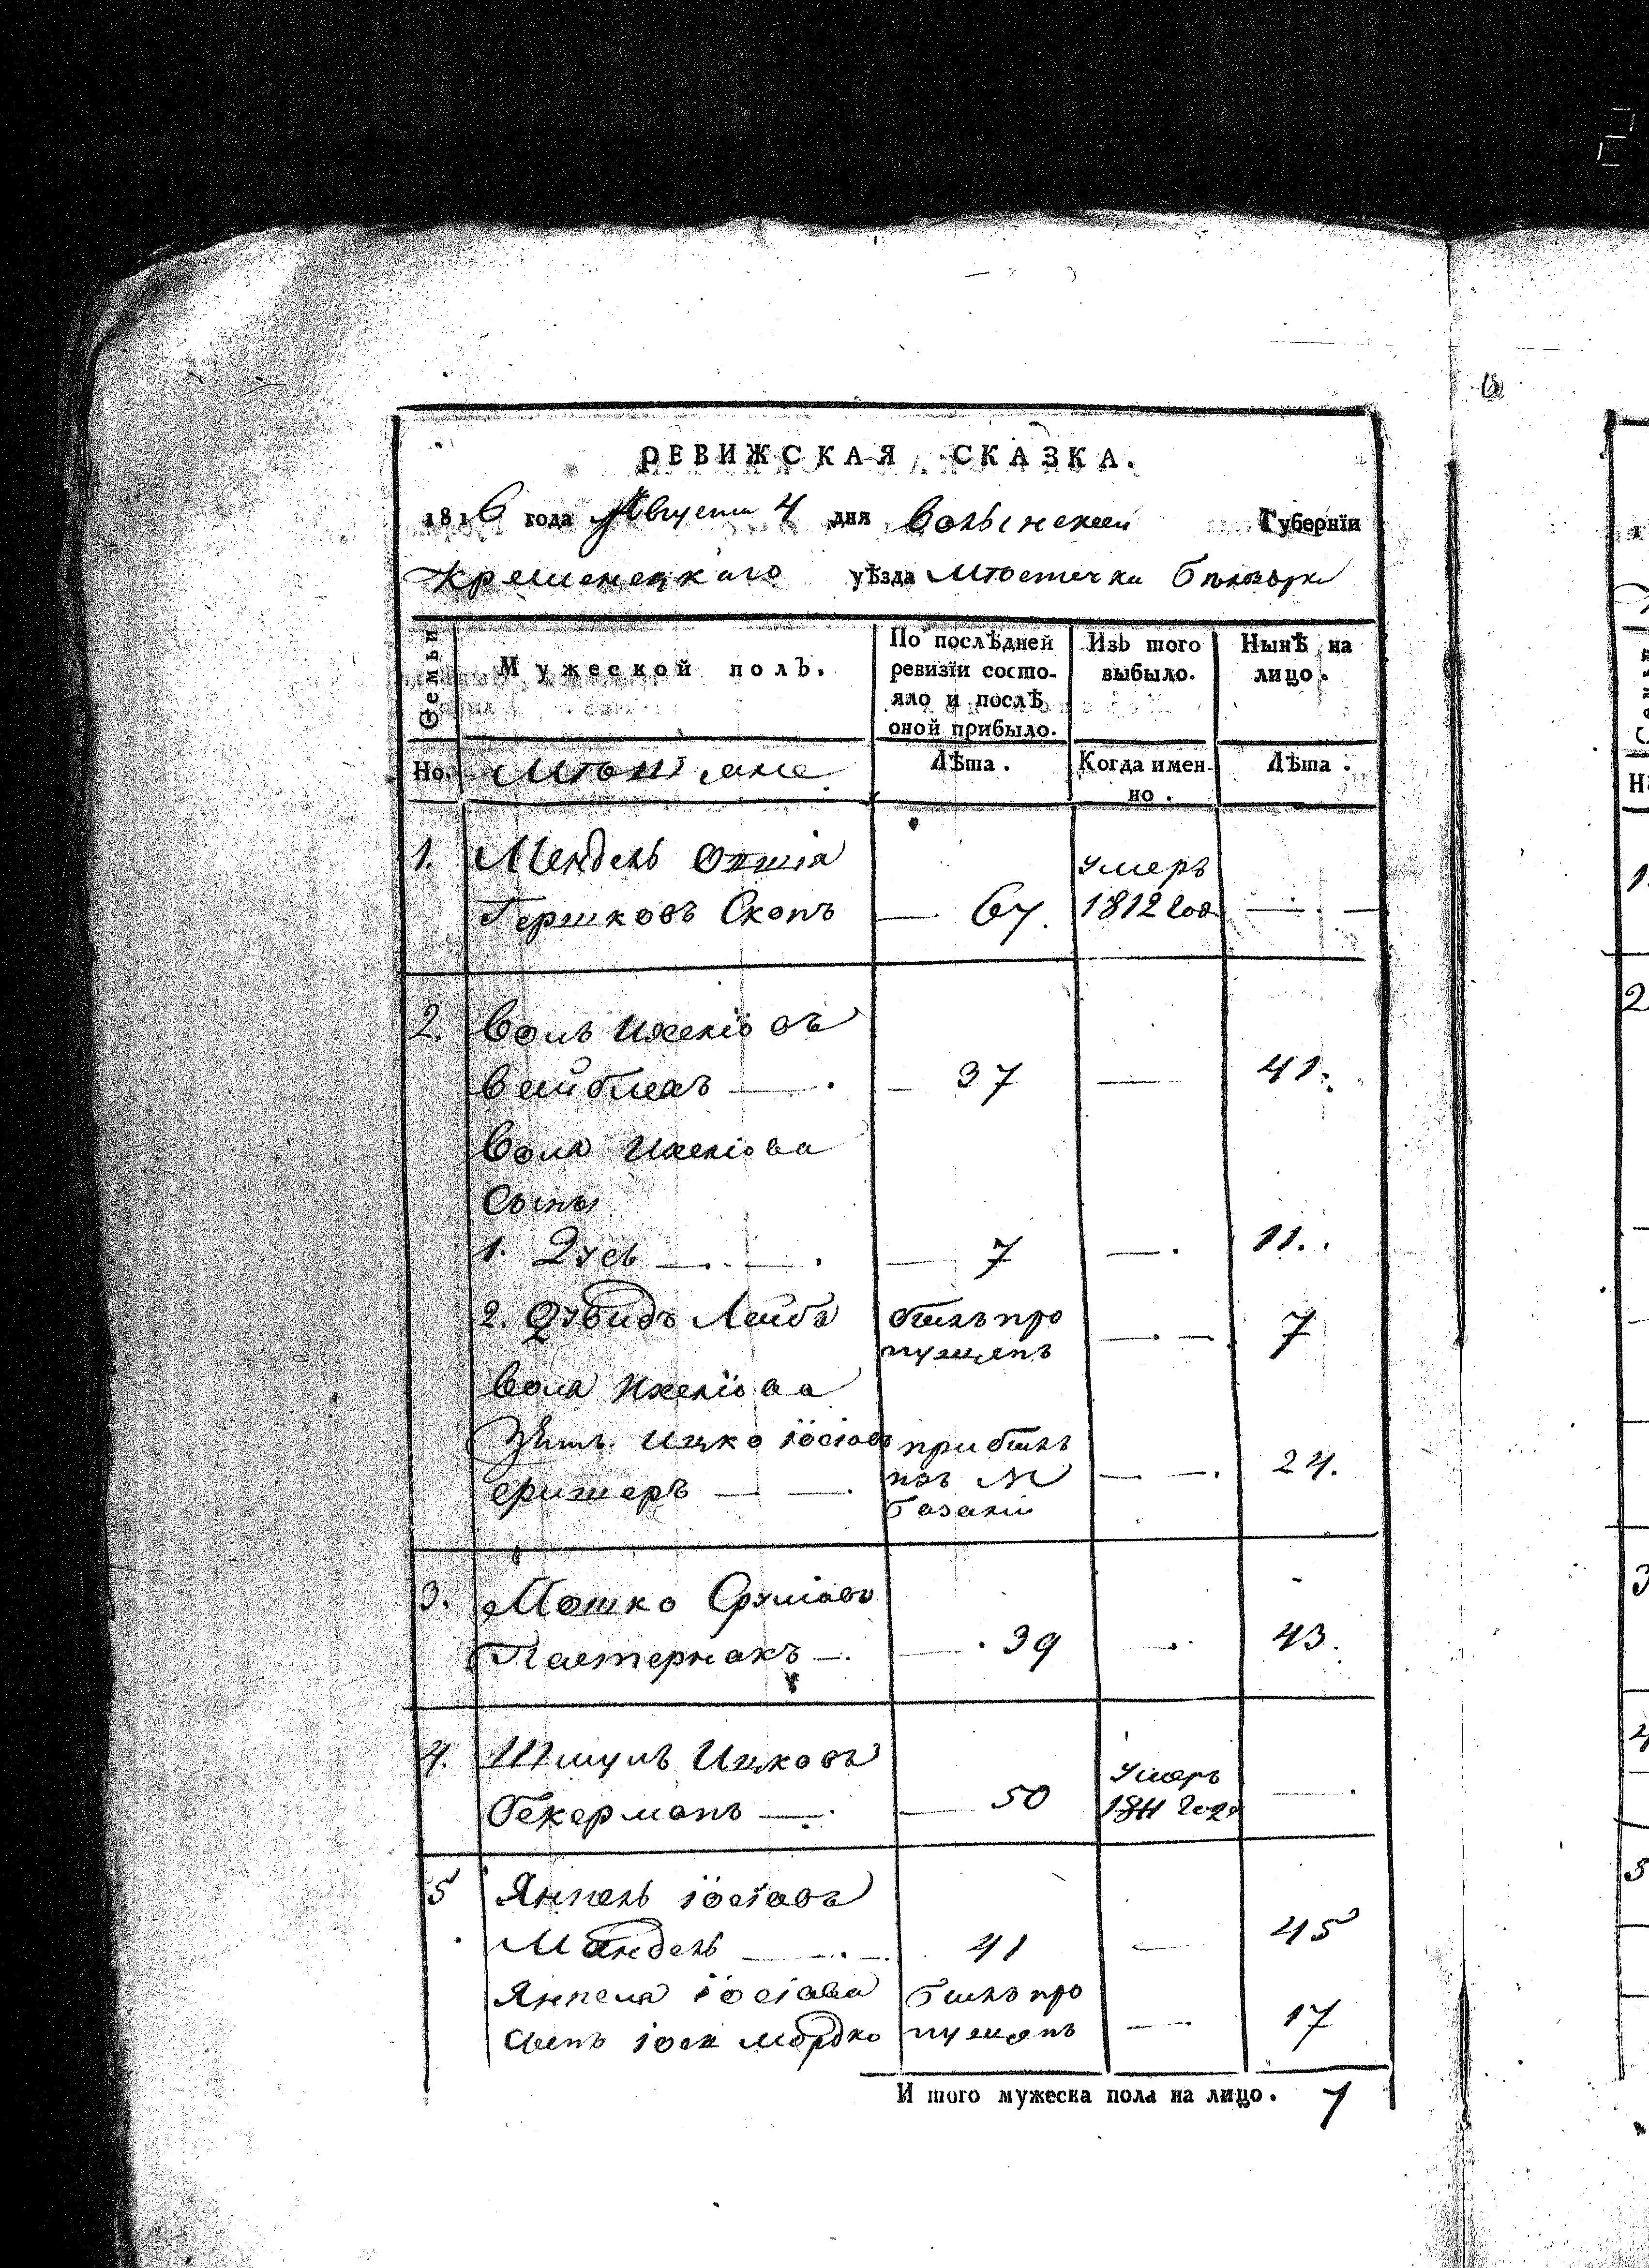 РЕВИЖСКАЯ СКАЗКА.
1816 года Августа 4 дня Волынской Губернїи
Кременецкаго уѣзда Мѣстечка Бѣлозорки
Семьи
Мужеской полъ.
По послѣдней ревизїи состояло и послѣ оной прибыло.
Изъ того выбыло.
Нынѣ на лицо.
Но. Мѣщане
Лѣта.
Когда именно.
Лѣта.
1. Мендель
Гершковъ Скопъ — 67. умеръ 1812 год. — —
2. Волъ
Вейблатъ — 37 — 41.
Вола
Сыны
1. Зусь — 7 — 11.
2. Дувидъ Лейба былъ пропущенъ — 7
Вола
Зять Ицко Іосіовъ
прибылъ изъ М Базаліи — 24.
3. Мошко Срулiовъ
Пастернакъ — 39 — 43.
4. Шмулъ Ицковъ
Бекерманъ — 50 умеръ 1811 года —
5 Янкель Іосіовъ
Мандель — 41 — 45
Янкеля Іосіова былъ про
сынъ Іосъ Мордко пущенъ — 17
И того мужеска пола на лицо. 7